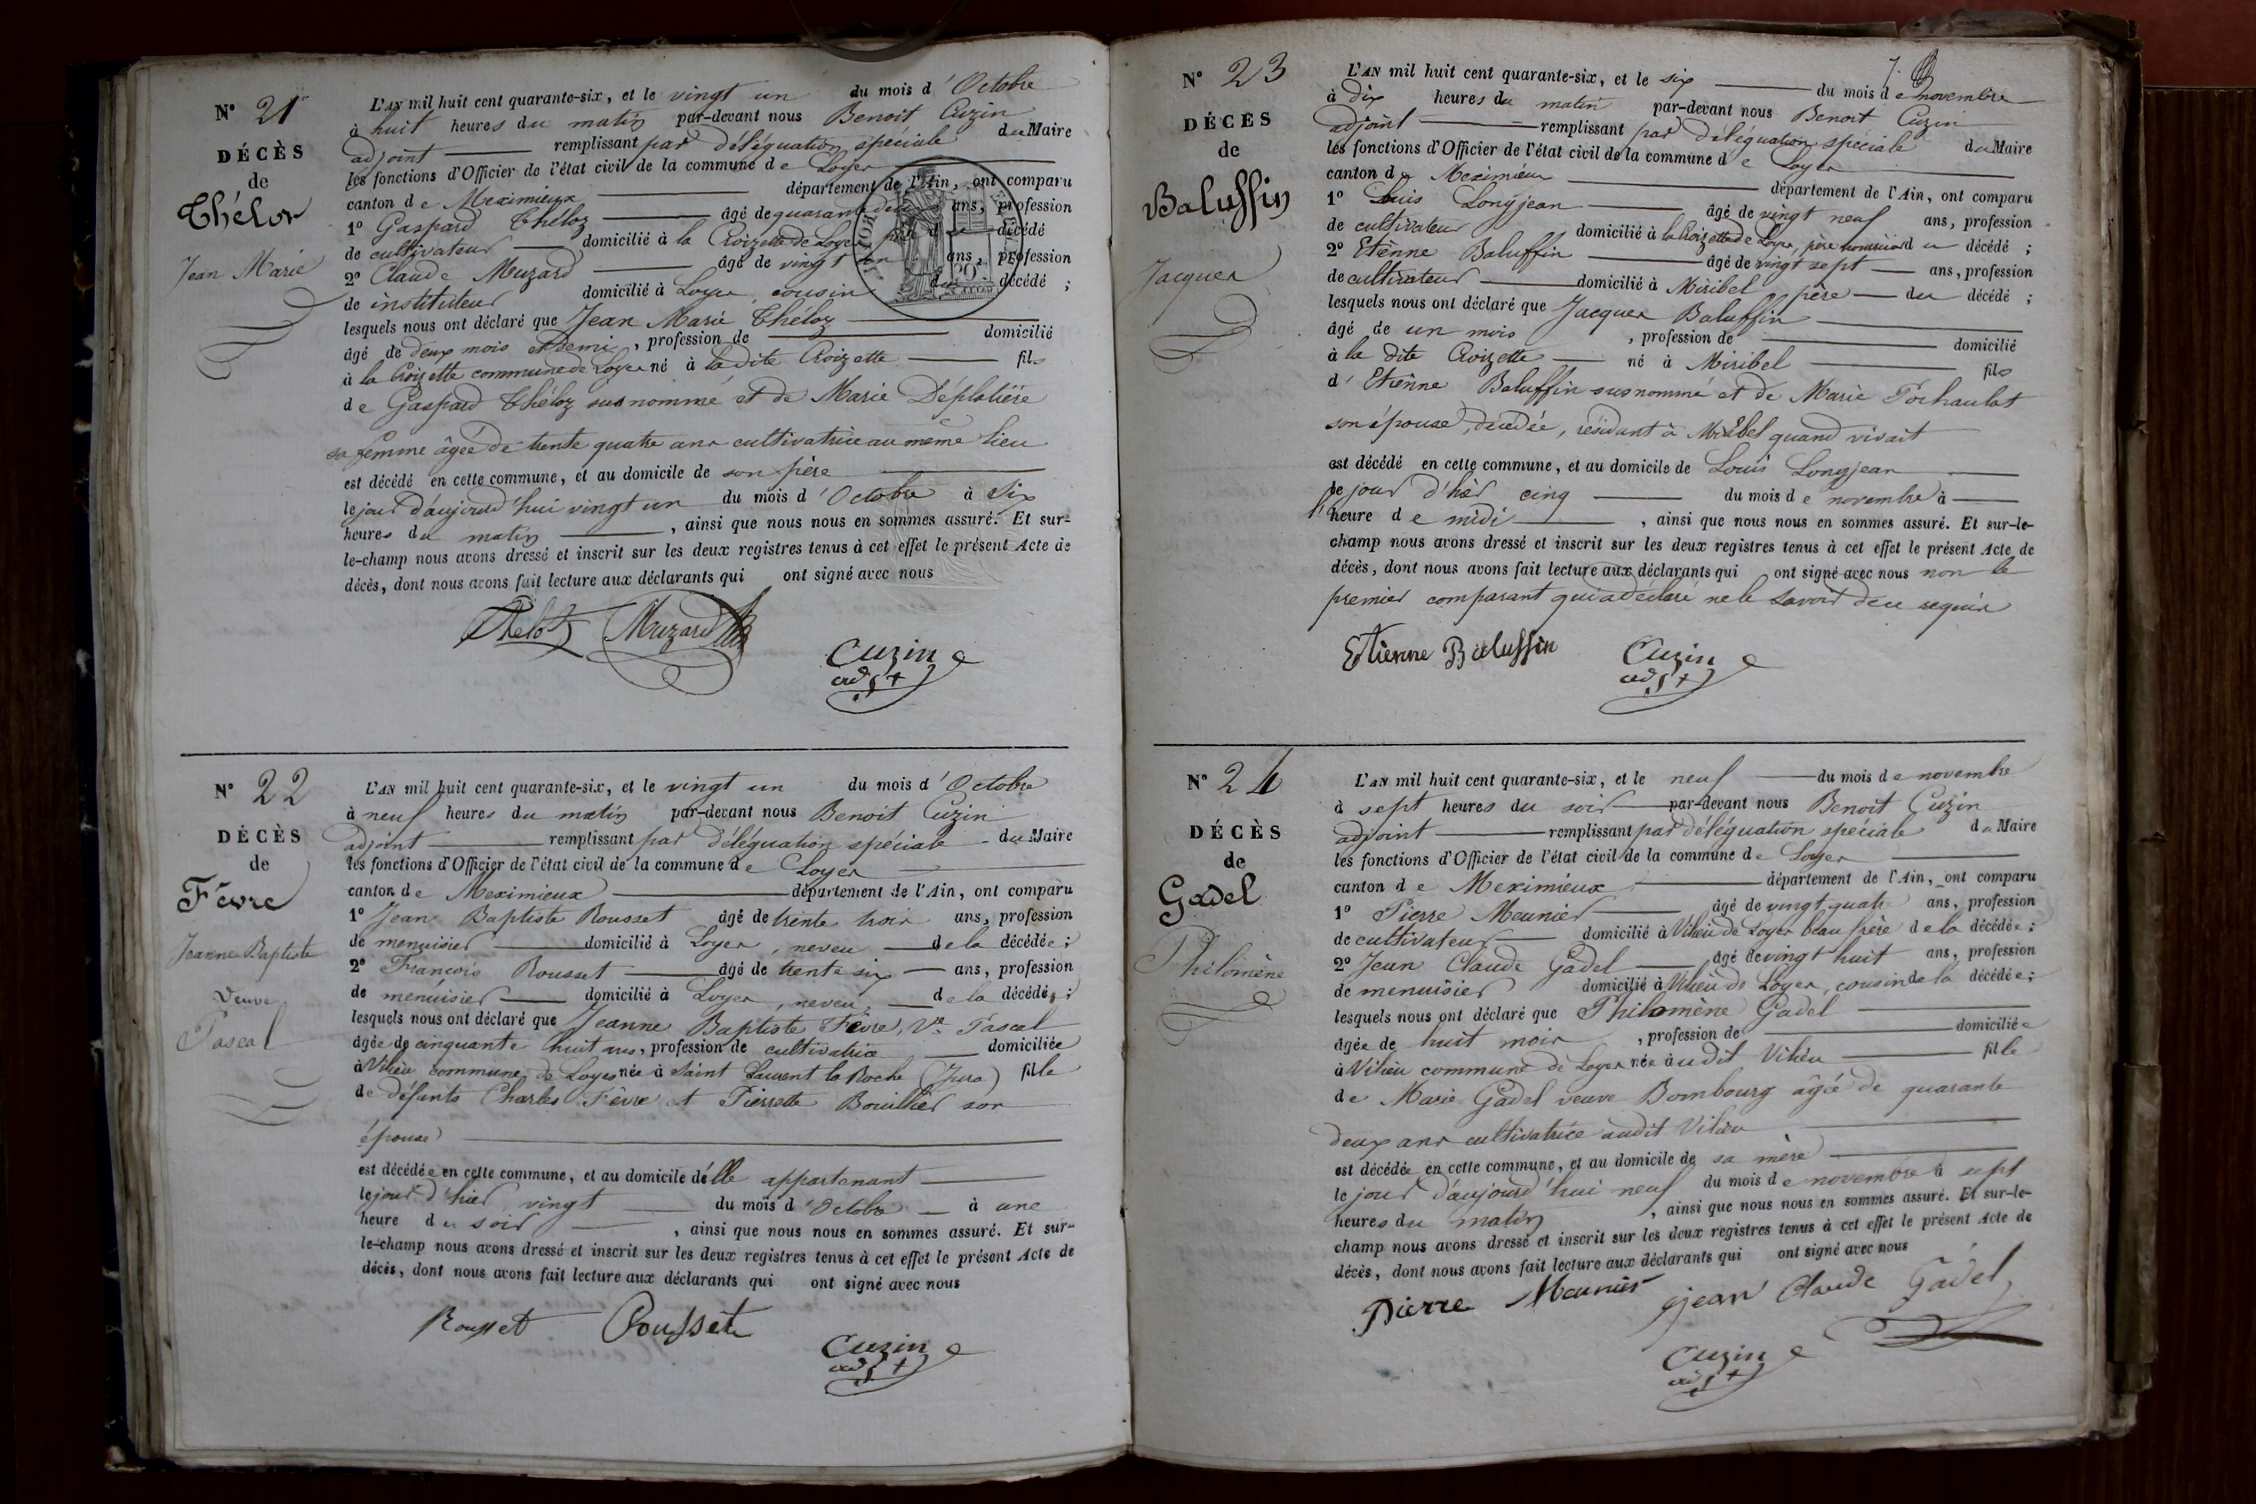 N° 21
DÉCÈS
de
Théloz
Jean Marie
L'AN mil huit cent quarante-six, et le vingt un du mois d'Octobre
à huit heures du matin par-devant nous Benoit Cuzin
adjoint remplissant par déléguation spéciale du Maire
les fonctions d'Officier de l'état civil de la commune de Loyes
canton de Meximieux département de l'Ain, ont comparu
1° Gaspard Théloz âgé de quarante deux ans, profession
de cultivateur domicilié à la Croizette de Loyes, père du décédé
2° Claude Muzard âgé de vingt un ans, profession
de instituteur domicilié à Loyes, cousin du décédé ;
lesquels nous ont déclaré que Jean Marie Théloz
âgé de deux mois et demi, profession de domicilié
à la Croizette commune de Loyes né à la dite Croizette fils
de Gaspard Théloz susnommé et de Marie Déplatière
sa femme âgée de trente quatre ans cultivatrice au même lieu
est décédé en cette commune, et au domicile de son père
le jour d'aujourd'hui vingt un du mois d'Octobre à six
heures du matin, ainsi que nous nous en sommes assuré. Et sur-
le-champ nous avons dressé et inscrit sur les deux registres tenus à cet effet le présent Acte de
décès, dont nous avons fait lecture aux déclarants qui ont signé avec nous
Theloz Muzard
Cuzin
adjt
N° 22
DÉCÈS
de
Févre
Jeanne Baptiste
Veuve
Pascal
L'AN mil huit cent quarante-six, et le vingt un du mois d'Octobre
à neuf heures du matin par-devant nous Benoit Cuzin
adjoint remplissant par déléguation spéciale du Maire
les fonctions d'Officier de l'état civil de la commune de Loyes
canton de Meximieux département de l'Ain, ont comparu
1° Jean Baptiste Rousset âgé de trente trois ans, profession
de menuisier domicilié à Loyes, neveu de la décédée ;
2° François Rousset âgé de trente six ans, profession
de menuisier domicilié à Loyes, neveu de la décédée ;
lesquels nous ont déclaré que Jeanne Baptiste Févre, Ve Pascal
âgée de cinquante huit ans, profession de cultivatrice domiciliée
à Vilieu commune de Loyes née à Saint Laurent la Roche (Jura) fille
de défunts Charles Févre et Pierrette Bouillier son
épouse
est décédée en cette commune, et au domicile d'elle appartenant
le jour d'hier vingt du mois d'Octobre à une
heure du soir, ainsi que nous nous en sommes assuré. Et sur-
le-champ nous avons dressé et inscrit sur les deux registres tenus à cet effet le présent Acte de
décès, dont nous avons fait lecture aux déclarants qui ont signé avec nous
Rousset Rousset
Cuzin
adjt
N° 23
DÉCÈS
de
Baluffin
Jacques
L'AN mil huit cent quarante-six, et le six du mois de novembre
à dix heures du matin par-devant nous Benoit Cuzin
adjoint remplissant par déléguation spéciale du Maire
les fonctions d'Officier de l'état civil de la commune de Loyes
canton de Meximieux département de l'Ain, ont comparu
1° Louis Longjean âgé de vingt neuf ans, profession
de cultivateur domicilié à la Croizette de Loyes, père nourricier du décédé ;
2° Etienne Baluffin âgé de vingt sept ans, profession
de cultivateur domicilié à Miribel père du décédé ;
lesquels nous ont déclaré que Jacques Baluffin
âgé de un mois, profession de domicilié
à la dite Croizette né à Miribel fils
d'Etienne Baluffin susnommé et de Marie Pochaulat
son épouse, décédée, résidant à Miribel quand vivait
est décédé en cette commune, et au domicile de Louis Longjean
le jour d'hier cinq du mois de novembre à
l'heure de midi, ainsi que nous nous en sommes assuré. Et sur-le-
champ nous avons dressé et inscrit sur les deux registres tenus à cet effet le présent Acte de
décès, dont nous avons fait lecture aux déclarants qui ont signé avec nous non le
premier comparant qui a déclaré ne le savoir de ce requis
Etienne Baluffin
Cuzin
adjt
N° 24
DÉCÈS
de
Gadel
Philomène
L'AN mil huit cent quarante-six, et le neuf du mois de novembre
à sept heures du soir par-devant nous Benoit Cuzin
adjoint remplissant par déléguation spéciale du Maire
les fonctions d'Officier de l'état civil de la commune de Loyes
canton de Meximieux département de l'Ain, ont comparu
1° Pierre Meunier âgé de vingt quatre ans, profession
de cultivateur domicilié à Vilieu de Loyes beau frère de la décédée ;
2° Jean Claude Gadel âgé de vingt huit ans, profession
de menuisier domicilié à Vilieu de Loyes, cousin de la décédée ;
lesquels nous ont déclaré que Philomène Gadel
âgée de huit mois, profession de domiciliée
à Vilieu commune de Loyes née audit Vilieu fille
de Marie Gadel veuve Bombourg âgée de quarante
deux ans cultivatrice audit Vilieu
est décédée en cette commune, et au domicile de sa mère
le jour d'aujourd'hui neuf du mois de novembre à sept
heures du matin, ainsi que nous nous en sommes assuré. Et sur-le-
champ nous avons dressé et inscrit sur les deux registres tenus à cet effet le présent Acte de
décès, dont nous avons fait lecture aux déclarants qui ont signé avec nous
Pierre Meunier jean Claude Gadel
Cuzin
adjt